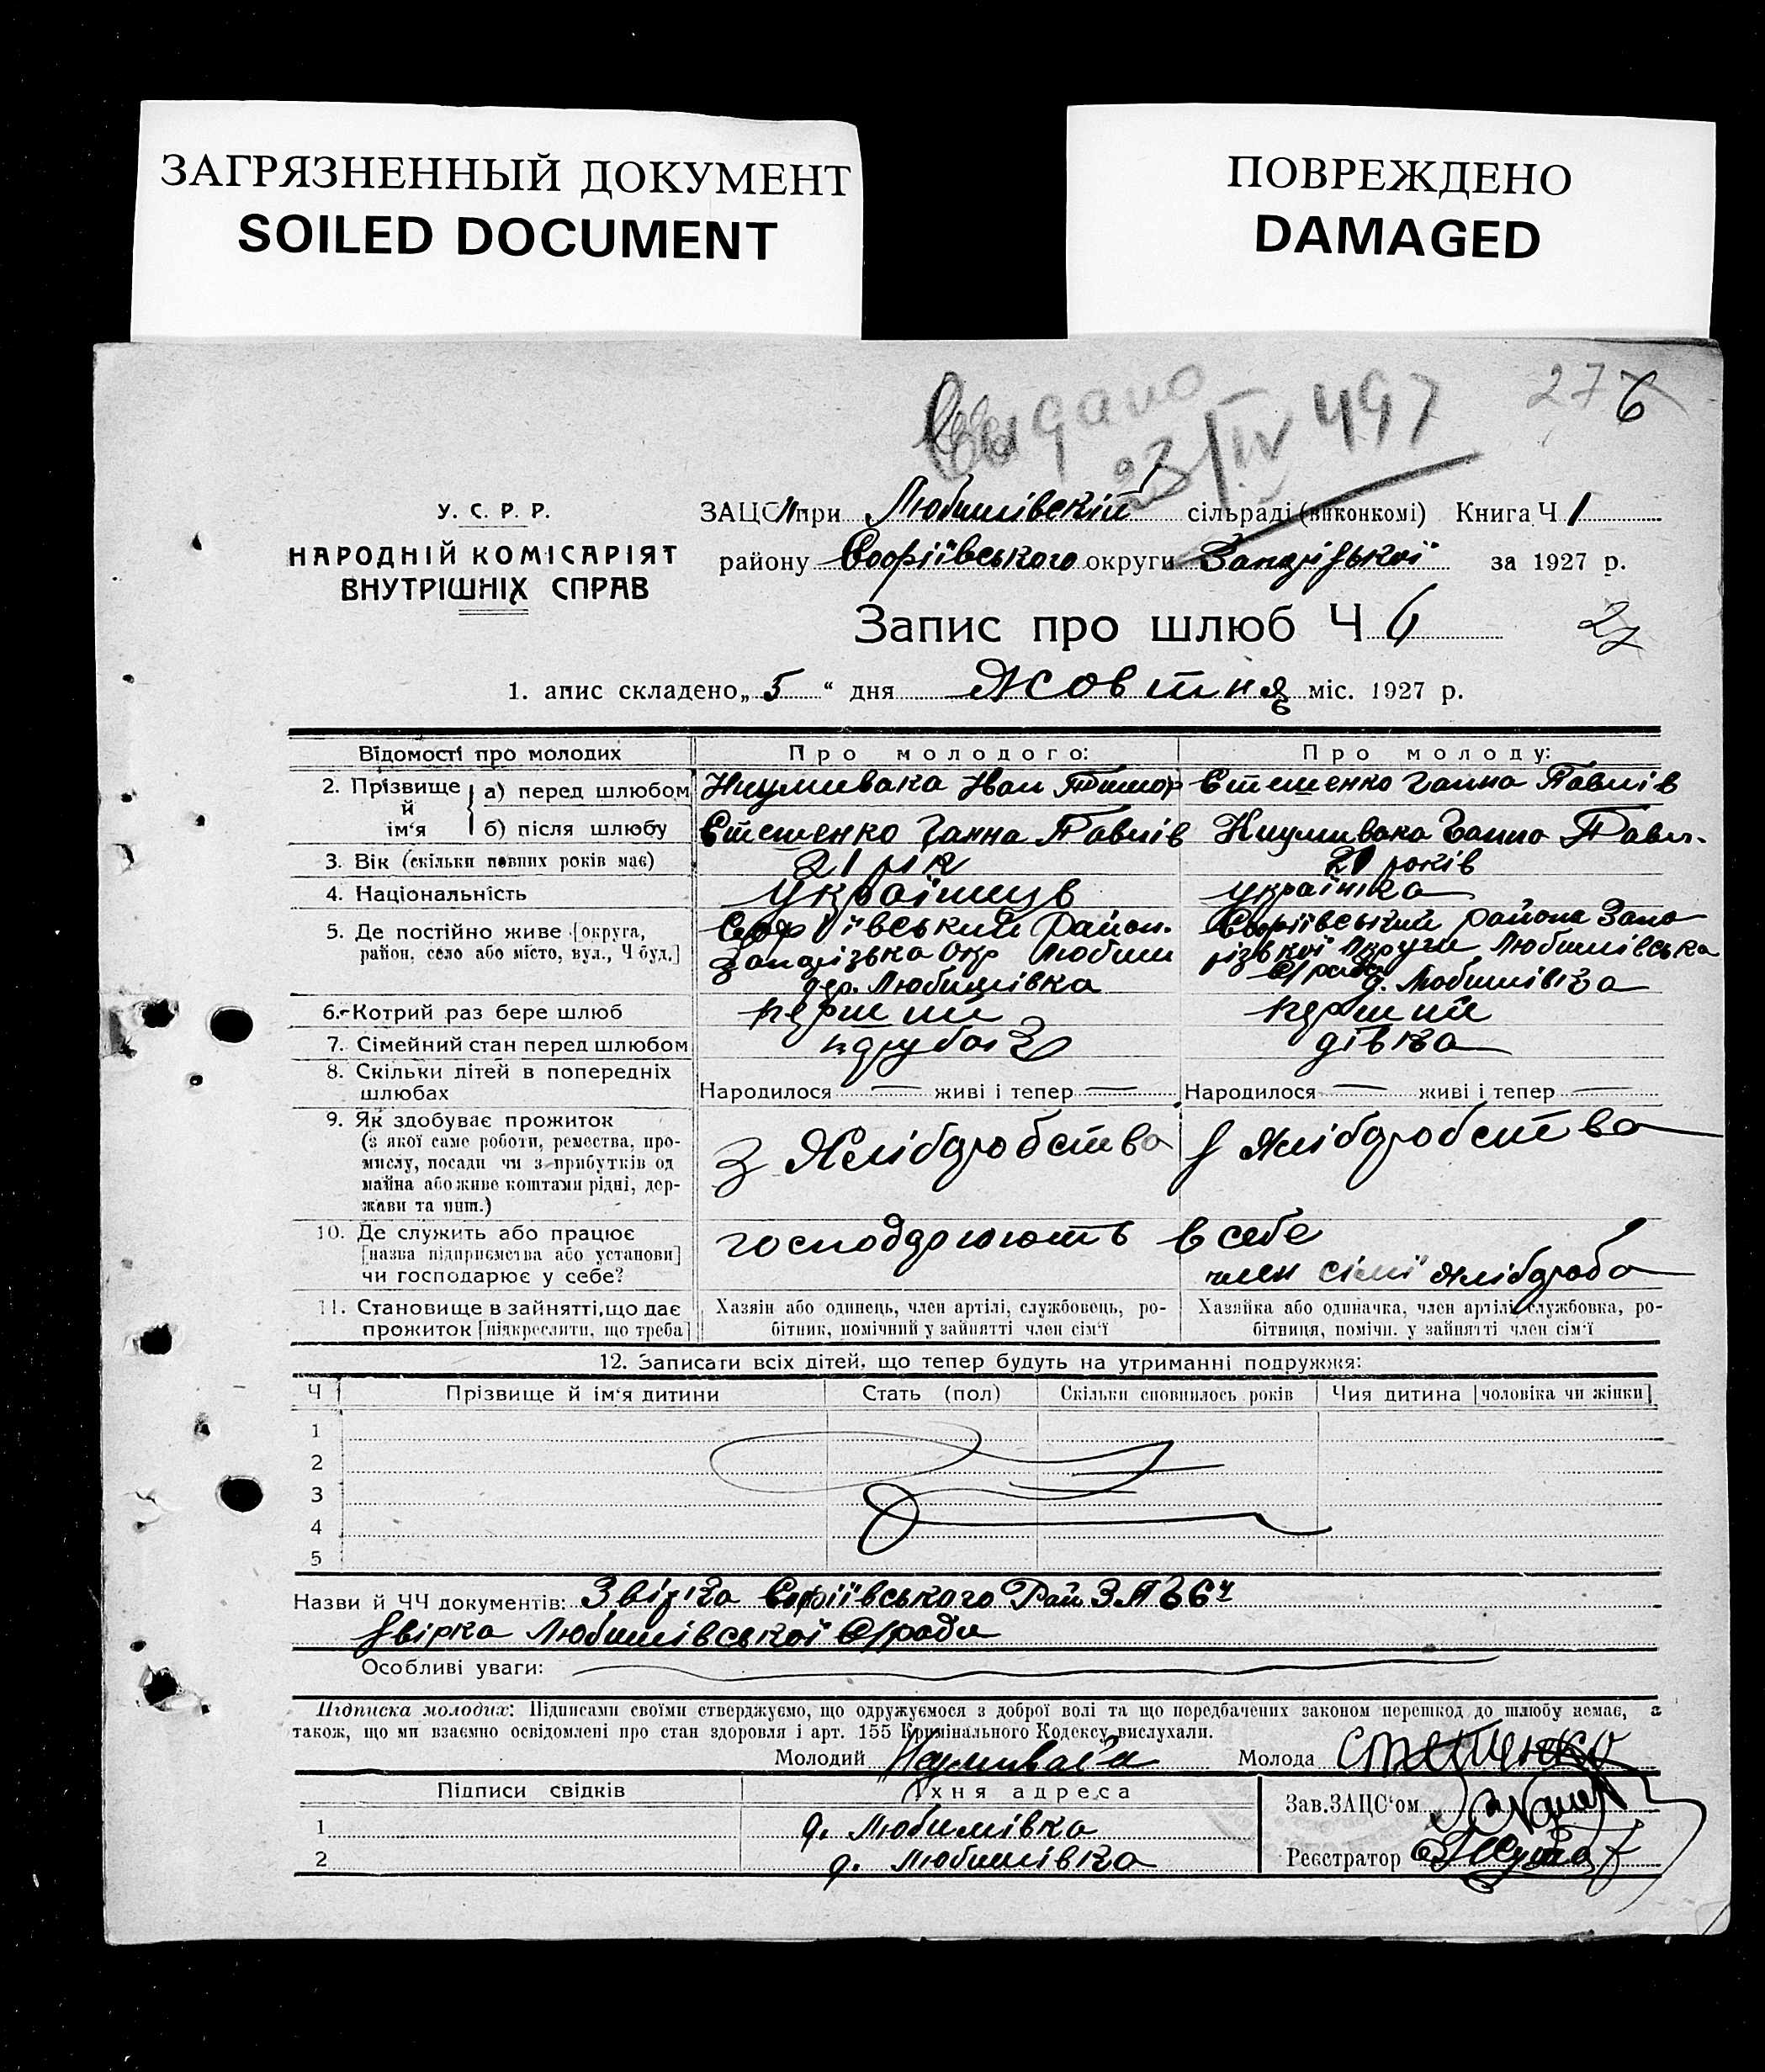 ЗАГРЯЗНЕННЫЙ ДОКУМЕНТ
SOILED DOCUMENT
ПОВРЕЖДЕНО
DAMAGED
27 6
Выдано
23/IV 497
У. С. Р. Р.
НАРОДНІЙ КОМІСАРІЯТ
ВНУТРІШНІХ СПРАВ
ЗАЦС при Любимівскій сільраді (виконкомі) Книга Ч 1
району Софіївського округи за 1927 р.
Запис про шлюб Ч 6
27
1. апис складено „ 5 “ дня Жовтня міс. 1927 р.
Відомості про молодих Про молодого: Про молоду:
2. Прізвище й ім‘я а) перед шлюбом Иван Стешенко Ганна Павлів
б) після шлюбу Стешенко Ганна Павлів Ганна Павл.
3. Вік (скільки повних років має) 21 рік років
4. Національність Українець українка
5. Де постійно живе [округа, район, село або місто, вул., Ч буд.] Софіївський район. Запорізька Окр дер. Любимівка Софіївський района Запорізької Округи Любимівська С/рада д. Любимівка
6. Котрий раз бере шлюб перший перший
7. Сімейний стан перед шлюбом парубок дівка
8. Скільки дітей в попередніх шлюбах Народилося — живі і тепер — Народилося — живі і тепер —
9. Як здобуває прожиток (з якої саме роботи, ремества, промислу, посади чи з прибутків од майна або живе коштами рідні, держави та инш.) з Хліборобства з Хліборобства
10. Де служить або працює [назва підприємства або установи] чи господарює у себе? господорюють в себе
член сімї хлібороба
11. Становище в зайнятті, що дає прожиток [підкреслити, що треба] Хазяін або одинець, член артілі, службовець, робітник, помічний у зайнятті член сім‘ї Хазяйка або одиначка, член артілі, службовка, робітниця, помічн. у зайнятті член сім‘ї
12. Записати всіх дітей, що тепер будуть на утриманні подружжя:
Ч Прізвище й ім‘я дитини Стать (пол) Скільки сповнилось років Чия дитина [чоловіка чи жінки]
1
2
3
4
5
Назви й ЧЧ документів: Звірка Софіївського Рай
звірка Любимівської С/ради
Особливі уваги:
Підписка молодих: Підписами своїми стверджуємо, що одружуємося з доброї волі та що передбачених законом перешкод до шлюбу немає, а
також, що ми взаємно освідомлені про стан здоровля і арт. 155 Крімінального Кодексу вислухали.
Молодий Молода Стешенко
Підписи свідків Їхня адреса
Зав.ЗАЦС‘ом
1 д. Любимівка
2 д. Любимівка
Реєстратор